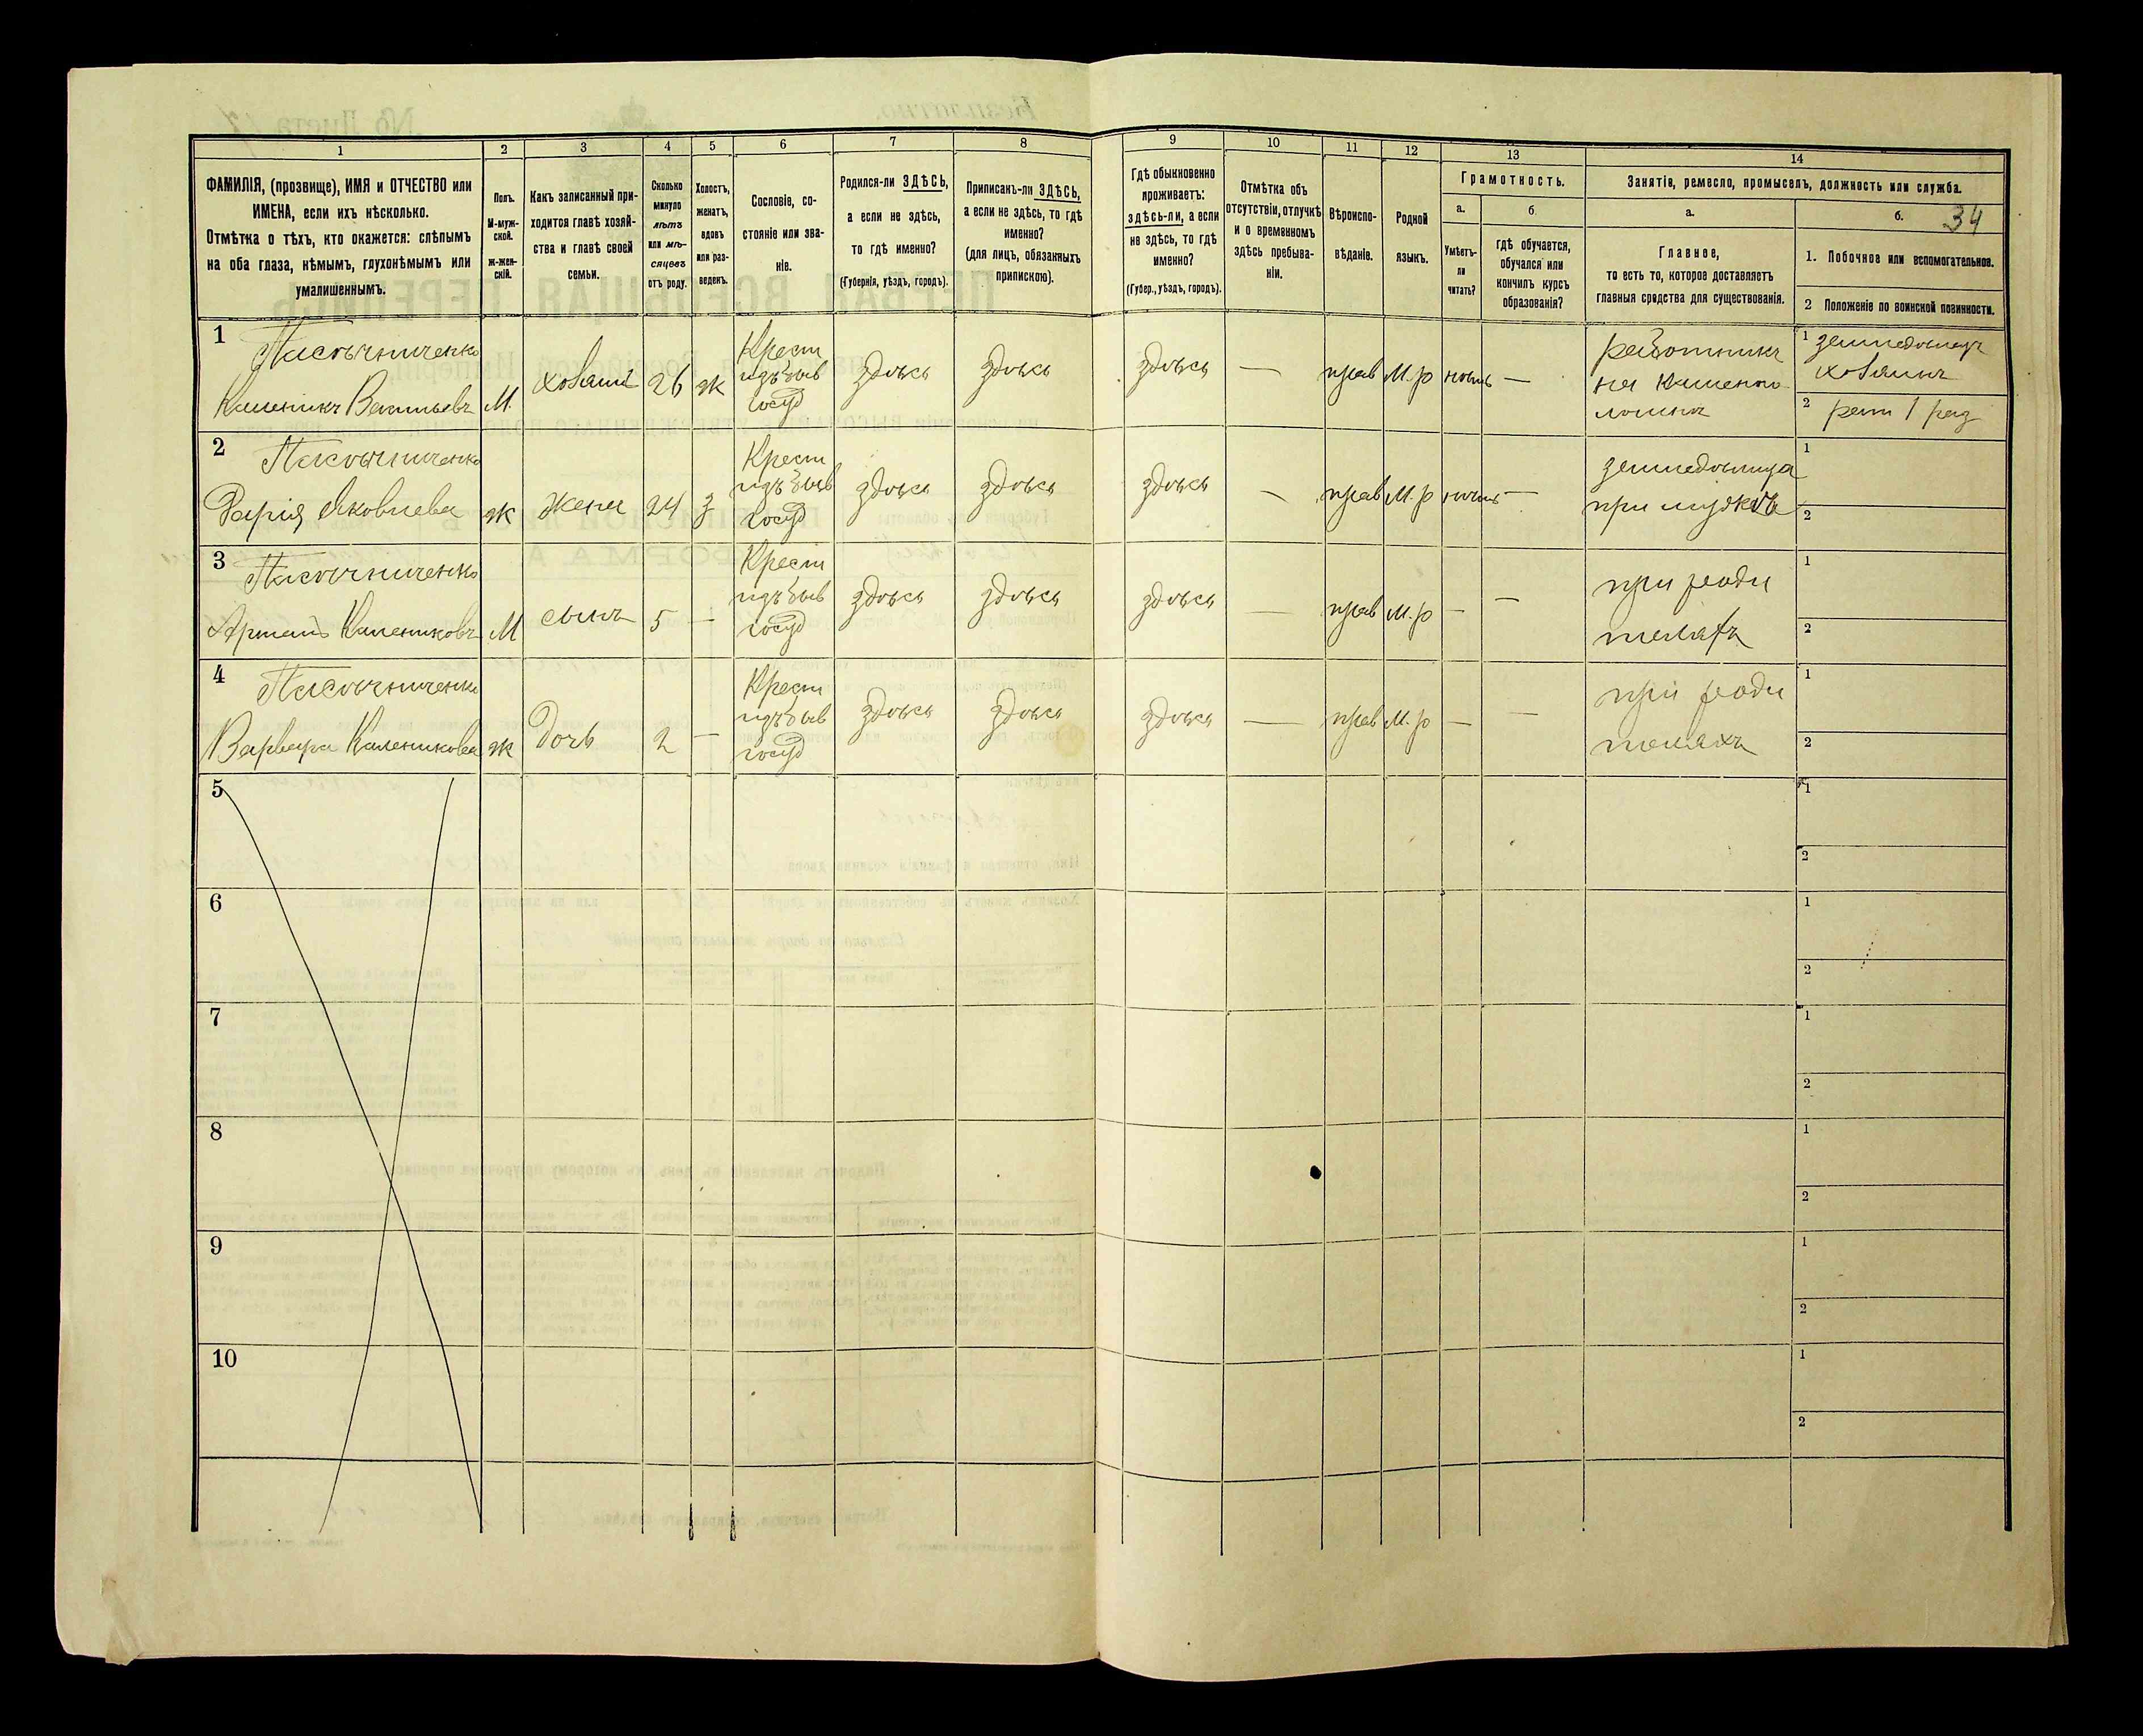 34
1
2
3
4
5
6
7
8
9
10
11
12
13
14
ФАМИЛІЯ, (прозвище), ИМЯ и ОТЧЕСТВО или
ИМЕНА, если ихъ нѣсколько.
Отмѣтка о тѣхъ, кто окажется: слѣпымъ
на оба глаза, нѣмымъ, глухонѣмымъ или
умалишеннымъ.
Полъ.
М-муж-
ской.
ж-жен-
скій.
Какъ записанный при-
ходится главѣ хозяй-
ства и главѣ своей
семьи.
Сколько
минуло
лѣтъ
или мѣ-
сяцевъ
отъ роду.
Холостъ,
женатъ,
вдовъ
или раз-
веденъ.
Сословіе, со-
стояніе или зва-
ніе.
Родился-ли ЗДѢСЬ,
а если не здѣсь,
то гдѣ именно?
(Губернія, уѣздъ, городъ).
Приписанъ-ли ЗДѢСЬ,
а если не здѣсь, то гдѣ
именно?
(для лицъ, обязанныхъ
припискою).
Гдѣ обыкновенно
проживаетъ:
здѣсь-ли, а если
не здѣсь, то гдѣ
именно?
(Губер., уѣздъ, городъ).
Отмѣтка объ
отсутствіи, отлучкѣ
и о временномъ
здѣсь пребыва-
ніи.
Вѣроиспо-
вѣданіе.
Родной
языкъ.
Грамотность.
а.
Умѣетъ-
ли
читать?
б.
гдѣ обучается,
обучался или
кончилъ курсъ
образованія?
Занятіе, ремесло, промыселъ, должность или служба.
а.
Главное,
то есть то, которое доставляетъ
главныя средства для существованія.
б.
1. Побочное или вспомогательное.
2 Положеніе по воинской повинности.
1
Пасѣчниченко
Каленикъ Васильевъ
М.
хозяинъ
26
ж
Крест
изъ быв
госуд
здѣсь
здѣсь
здѣсь
—
прав
М.р
нѣтъ
—
работникъ
на каменно
ломнѣ
1
земледѣлецъ
хозяинъ
2
рат 1 раз
2
Пасѣчниченко
Дарія Яковлева
ж
жена
24
з
Крест
изъ быв
госуд
здѣсь
здѣсь
здѣсь
—
прав
М.р
нѣтъ
—
земледѣлица
при мужѣ
1
2
3
Пасѣчниченко
Каллениковъ
М
сынъ
5
—
Крест
изъ быв
госуд
здѣсь
здѣсь
здѣсь
—
прав
М.р
—
—
при роди
теляхъ
1
2
4
Пасѣчниченко
Варвара Каленикова
ж
дочь
2
—
Крест
изъ быв
госуд
здѣсь
здѣсь
здѣсь
—
прав
М.р
—
—
при роди
теляхъ
1
2
5
1
2
6
1
2
7
1
2
8
1
2
9
1
2
10
1
2